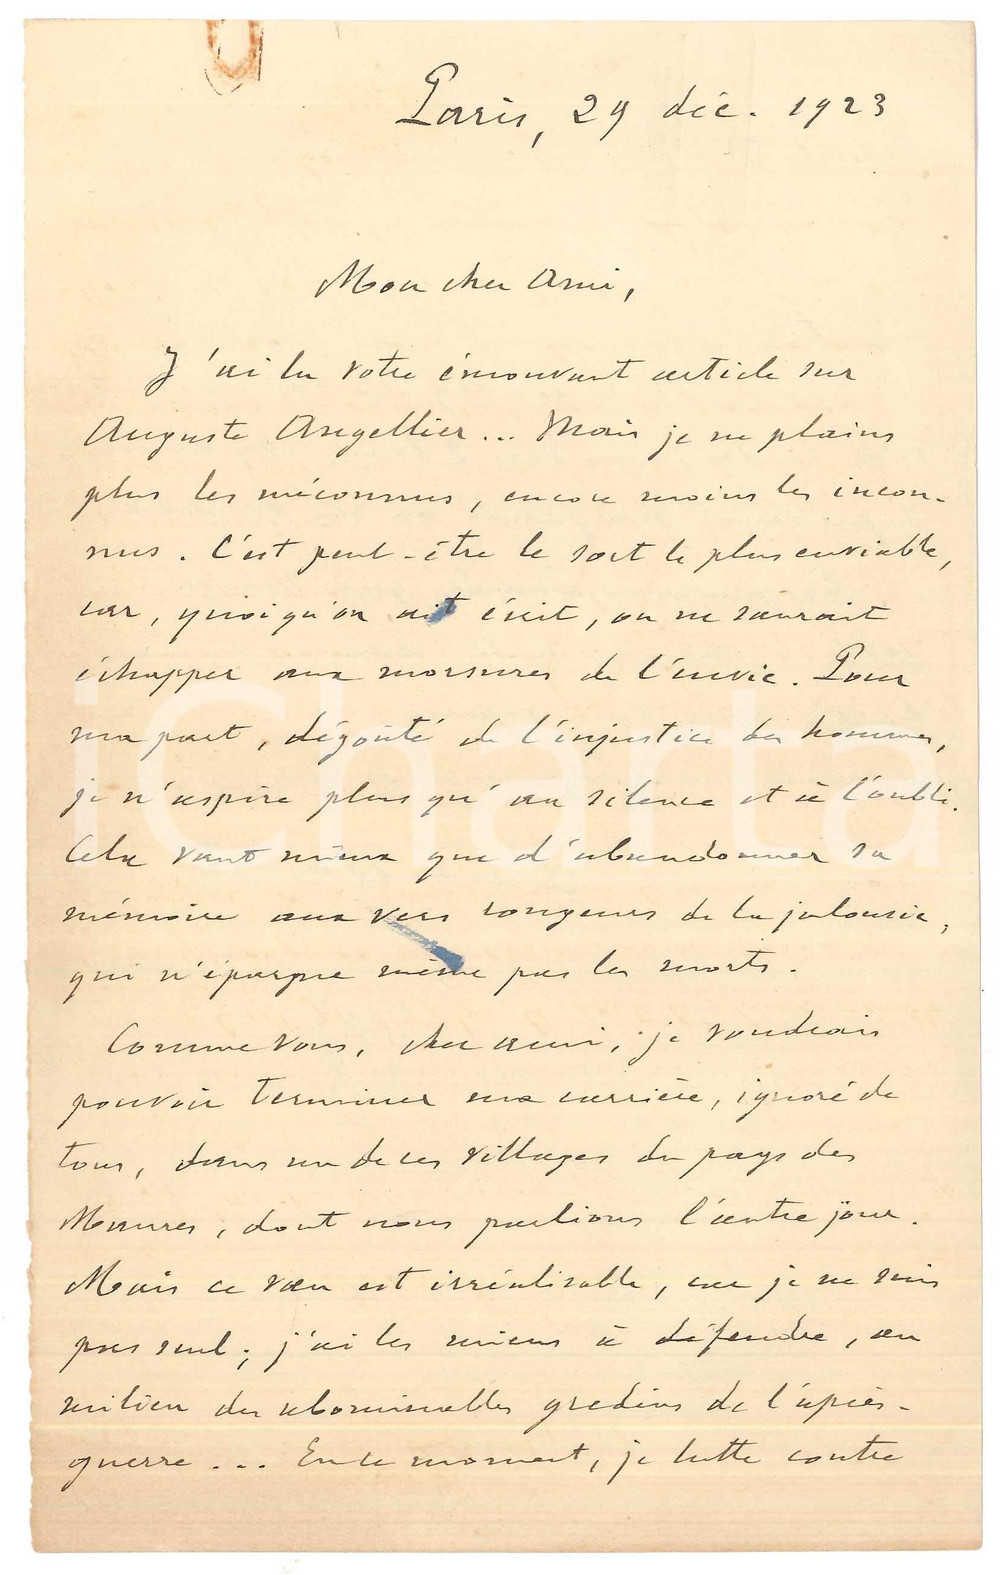 Paris, 29 déc. 1923
Mon cher Ami,
J'ai lu votre émouvant article sur
Auguste Angellier... Mais je ne plains
plus les méconnus, encore moins les incon-
nus. C'est peut-être le sort le plus enviable,
car, quoiqu'on ait écrit, on ne saurait
échapper aux morsures de l'envie. Pour
ma part, dégoûté de l'injustice des hommes,
je n'aspire plus qu'au silence et à l'oubli.
Cela vaut mieux que d'abandonner sa
mémoire aux vers rongeurs de la jalousie,
qui n'épargne même pas les morts.
Comme vous, cher ami, je voudrais
pouvoir terminer ma carrière, ignoré de
tous, dans un de ces villages du pays des
Maures, dont nous parlions l'autre jour.
Mais ce vœu est irréalisable, car je ne suis
pas seul; j'ai les miens à défendre, au
milieu des abominables gredins de l'après-
guerre... En ce moment, je lutte contre
iCharta